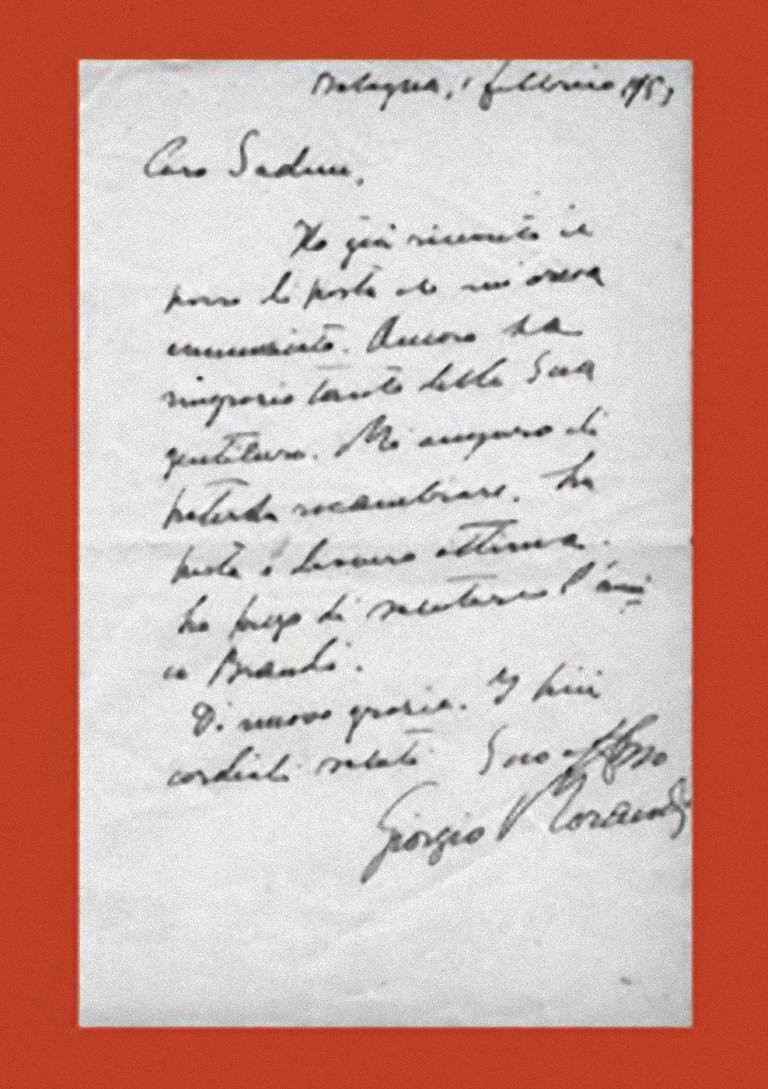 Bologna, 1 febbraio 195
Caro
Ho già ricevuto il
pacco di posta che mi aveva
annunciato. Ancora La
ringrazio tanto della Sua
gentilezza. Mi auguro di
poterla ricambiare. La
pasta è davvero ottima.
La prego di salutarmi l'ami
co Brandi.
Di nuovo grazie. I più
cordiali saluti Suo affmo
Giorgio Morandi